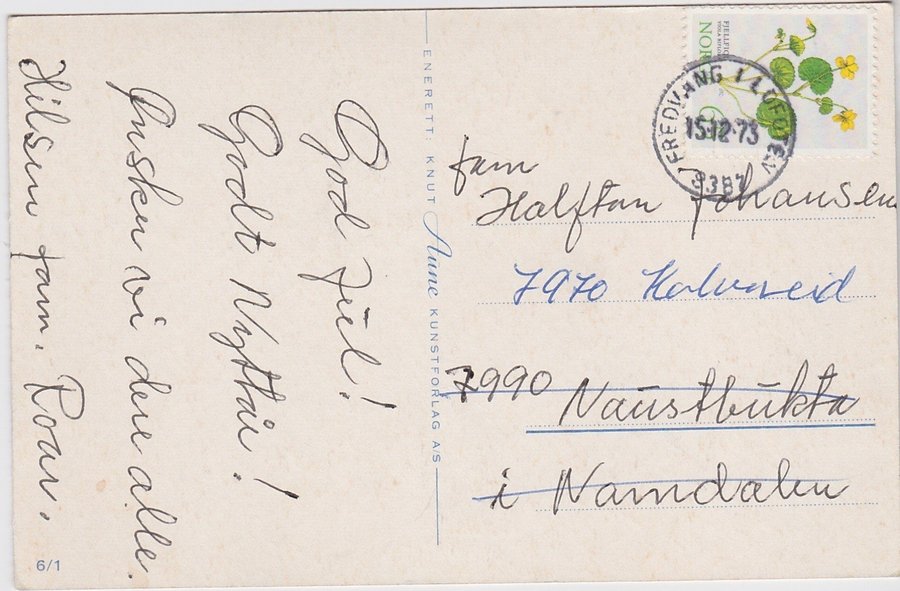 God Jul!
Godt Nyttår!
Ønsker vi dere alle.
Hilsen fam. Roar.
ENERETT: KNUT Aune KUNSTFORLAG A/S
6/1
NOR
FJELLFIOL
FREDVANG I LOFOTEN
15.12.73
8387
fam
Halftan Johansen
7970 Kolvereid
7990 Naustbukta
i Namdalen